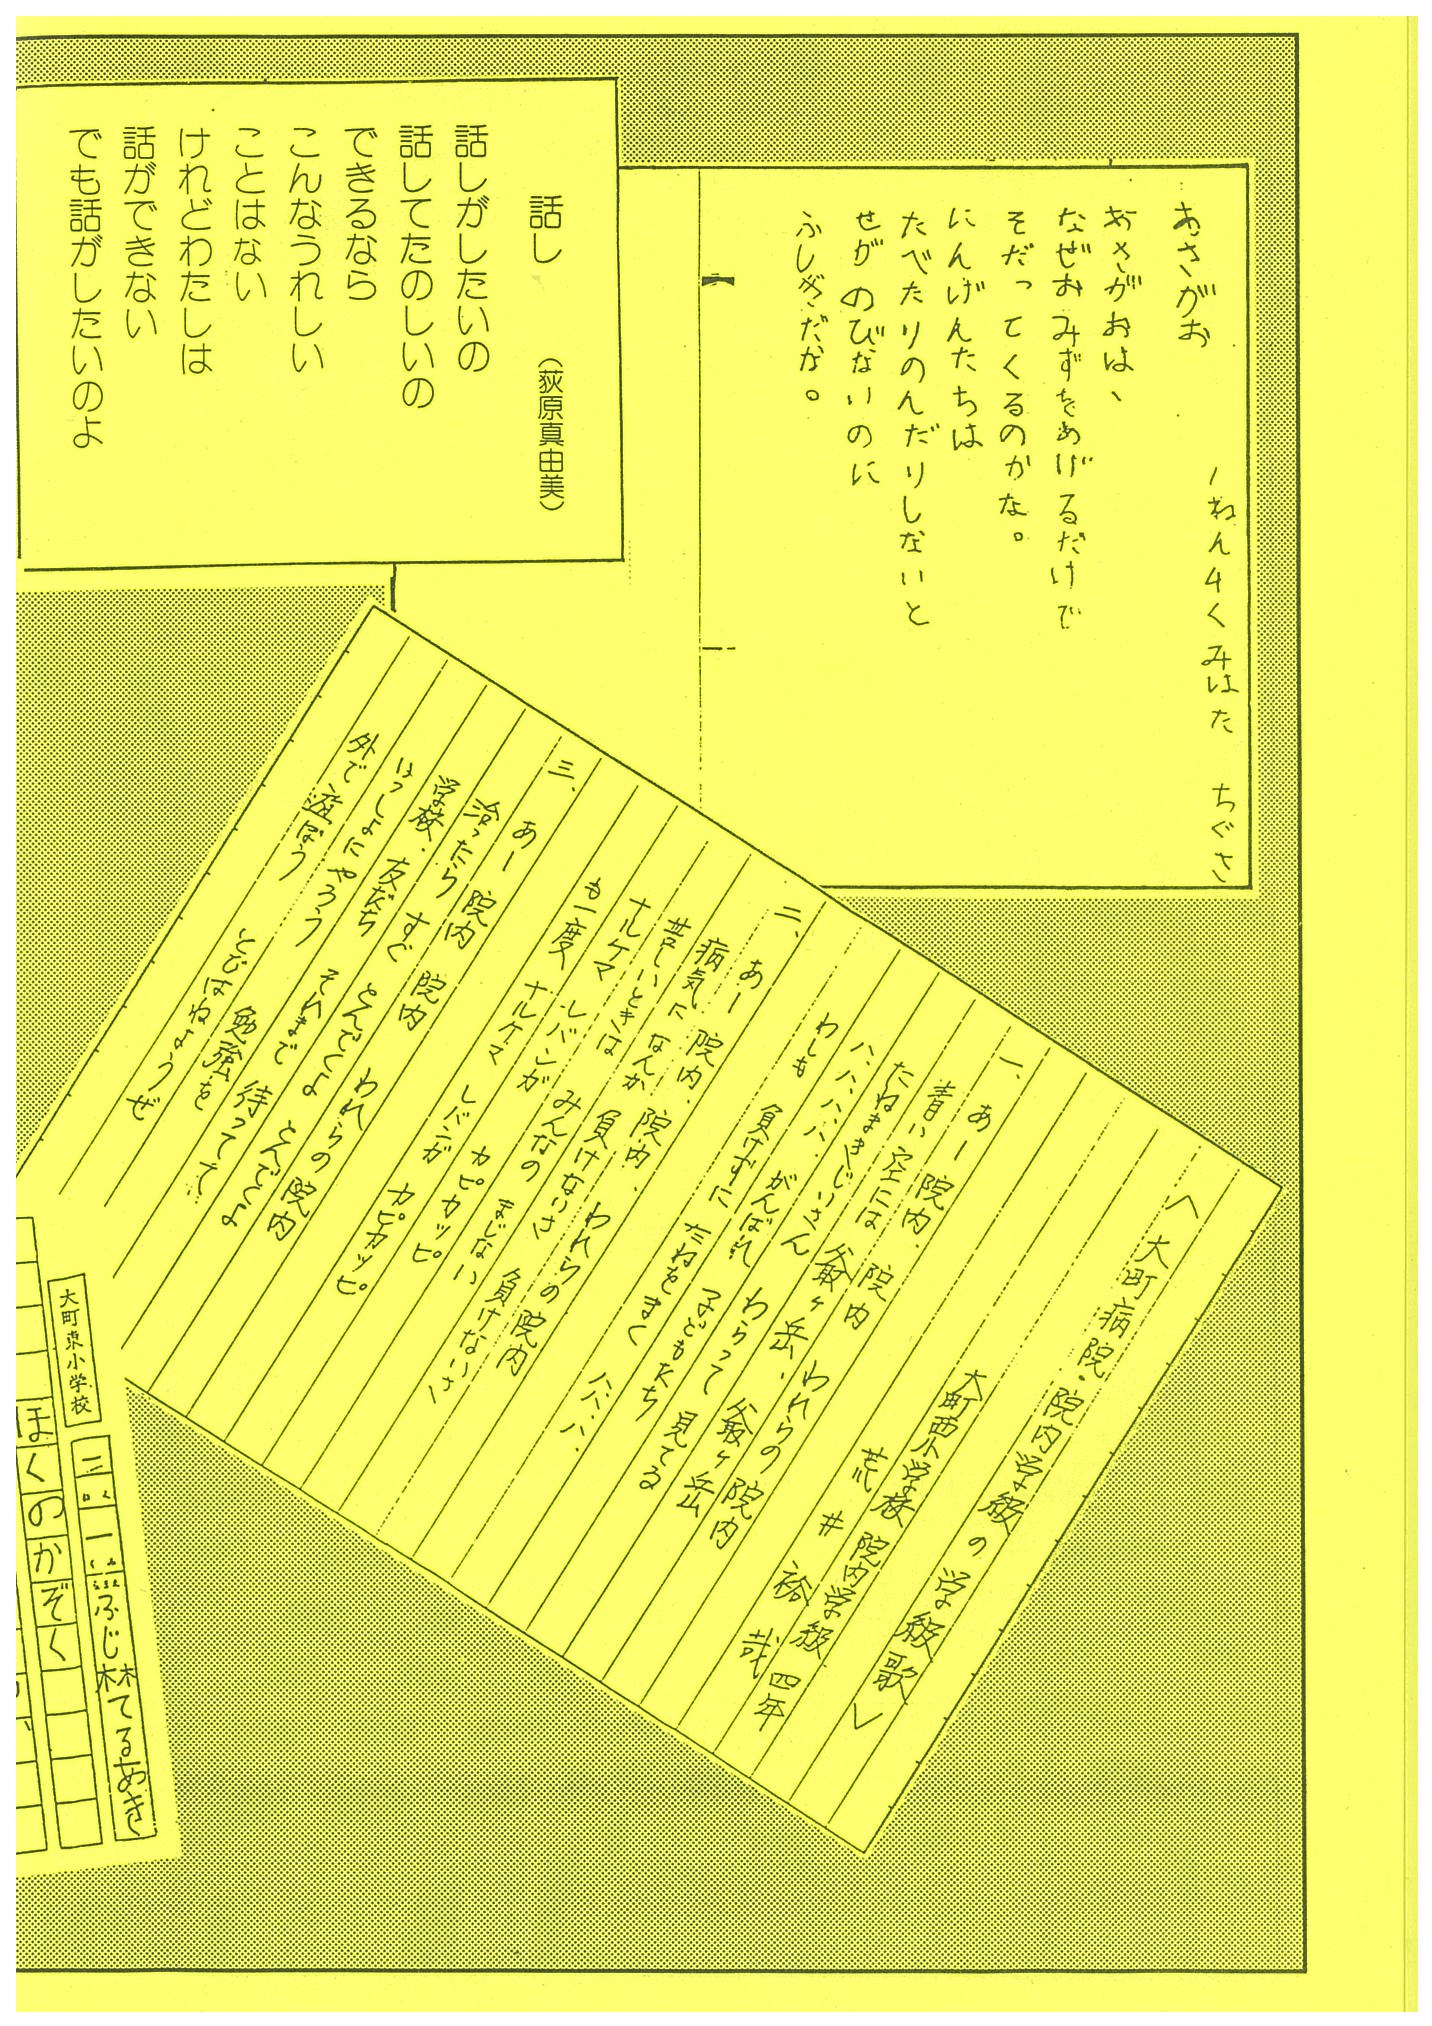 あさがお
一ねん4くみ はた ちぐさ
あさがおは、
なぜおみずをあげるだけで
そだってくるのかな。
にんげんたちは
たべたりのんだりしないと
せがのびないのに
ふしぎだな。
話し
(荻原真由美)
話しがしたいの
話してたのしいの
できるなら
こんなうれしい
ことはない
けれどわたしは
話ができない
でも話がしたいのよ
<大町病院・院内学級の学級歌>
大町西小学校 院内学級 四年
荒井 裕哉
一、あー 院内、院内 われらの院内
青い空には 爺ヶ岳、爺ヶ岳
たねまきじいさん わらって見てる
ハ、ハ、ハ、ハ、がんばれ 子どもたち
わしも 負けずに たねをまく ハ、ハ、ハ、
二、あー 院内、院内、われらの院内
病気になんか 負けないさ 負けないさ
苦しいときは みんなの まじない
ナルケマ レバンガ カピカッピ
も一度 ナルケマ レバンガ カピカッピ
三、あー 院内 院内 われらの院内
治ったら すぐ とんでくよ とんでくよ
学校、友だち それまで 待ってて
いっしょにやろう 勉強を
外で遊ぼう とびはねようぜ
大町東小学校
三の一 ふじ林てるあき
ぼくのかぞく